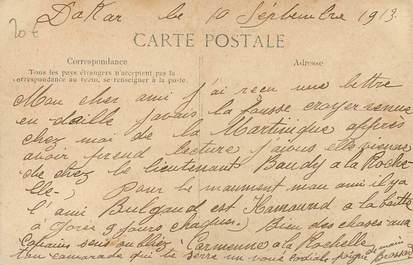 20 €
Dakar le 10 Séptembre 1913.
CARTE POSTALE
Correspondance
Adresse
Tous les pays étrangers n'acceptent pas la
correspondance au recto, se renseigner à la poste.
Mon cher ami j'ai reçu une lettre
en javais la fausse croyer venue
chez moi de la Martinique après
avoir prend lecture j'ai vus elle
de chez le lieutenant Baudy a la Roche
lle pour le moument mon ami il y a
l'ami est a la boitte
a 9 jours Bien des choses aux
Copains sens a la Rochelle
ton camarade qui te serre un poigné de main